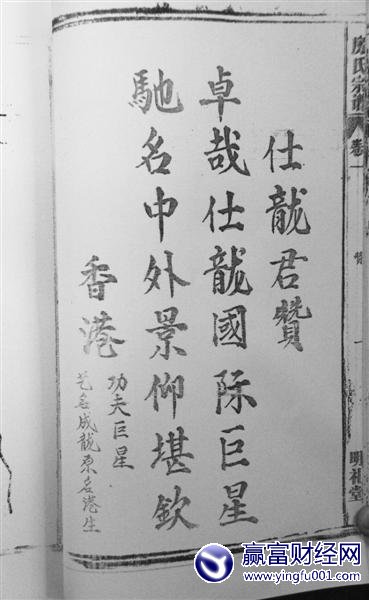 房氏宗譜
卷一
明礼堂
仕龍君贊
卓哉仕龍國际巨星
馳名中外景仰堪欽
香港
功夫巨星
艺名成龍原名港生
赢富财经网
www.yingfu001.com